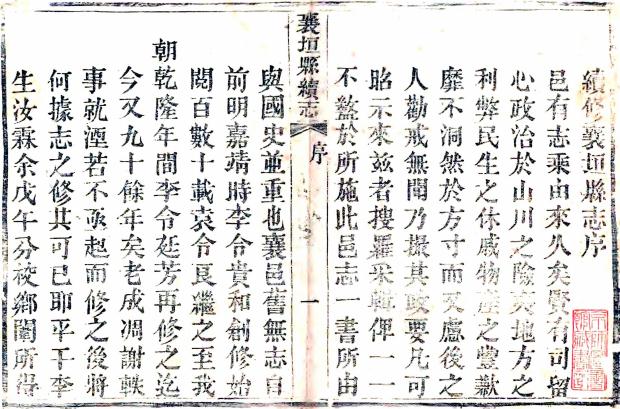 續修襄垣縣志序
邑有志乘由來久矣賢有司留
心政治於山川之險夷地方之
利弊民生之休戚物產之豐歉
靡不洞然於方寸而又慮後之
人勸戒無聞乃撮其政要凡可
昭示來茲者搜羅采輯俾一一
不盭於所施此邑志一書所由
襄垣縣續志
序
一
與國史並重也襄邑舊無志自
前明嘉靖時李令貴和創修始
閱百數十載袁令良繼之至我
朝乾隆年間李令延芳再修之迄
今又九十餘年矣老成凋謝軼
事就湮若不亟起而修之後將
何據志之修其可已耶平干李
生汝霖余戊午分校鄉闈所得